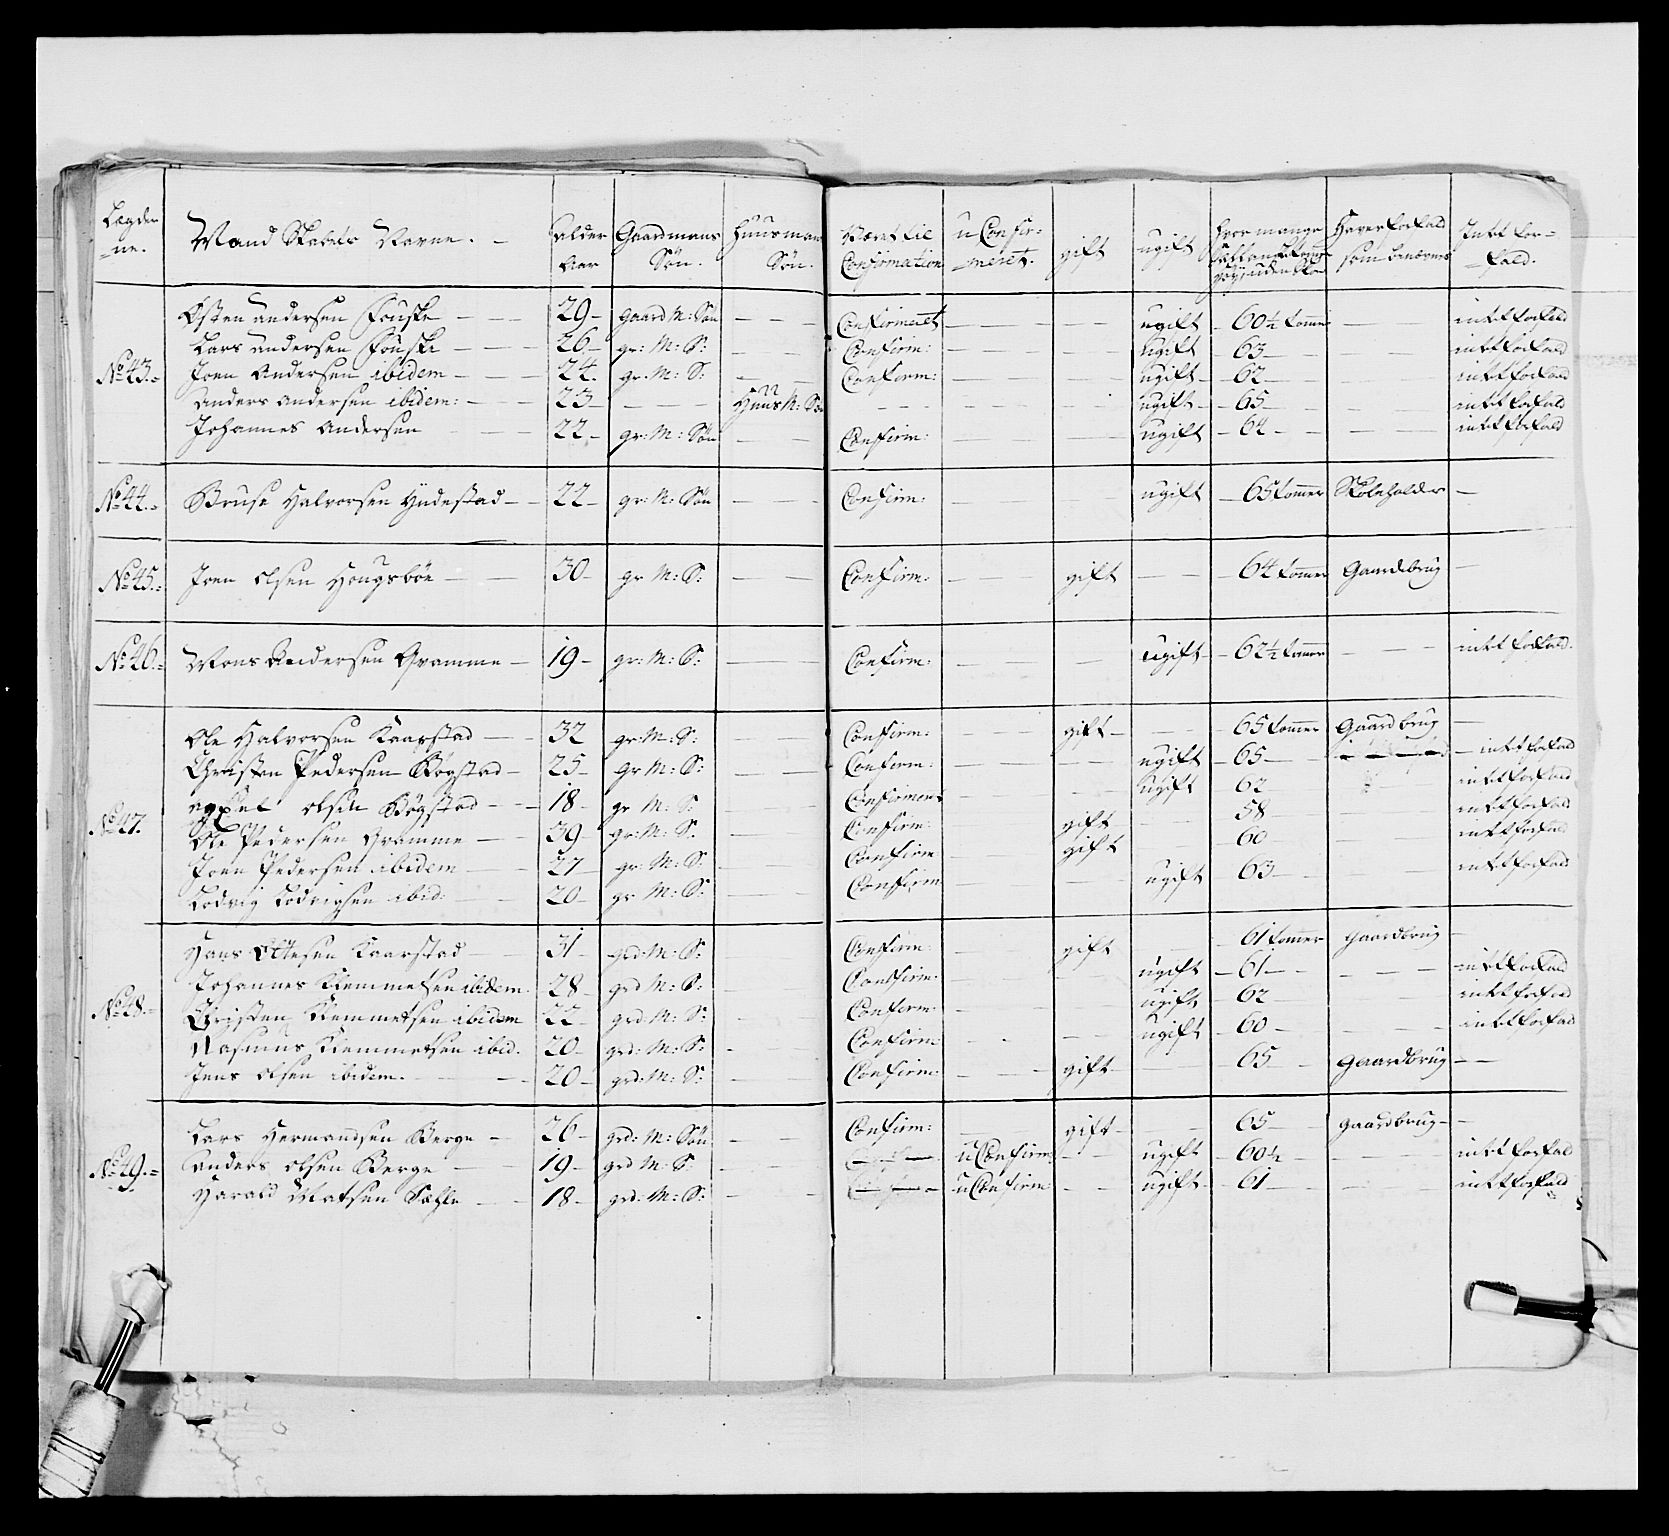 Lægder ne. Mand Skabets Navne. Alder Aar Gaardmans Søn. Huusman Søn. Været til Confirmation uConfir-meret. gift ugift hvor mange Haver forfald som benævnes Intet for-fald.
Østen andersen Fouske 29 Gaard M: Søn Confirmeret ugift 60½ tomer intet forfald
Lars andersen Fouske 26 gr: M: S: Confirm: ugift 63 intet forfald
No 43. Joen Andersen ibidem 24. gr. M: S: Confirm: ugift 62 intet forfald
Anders andersen ibidem: 23 Huus M: Søn ugift 65 intet forfald
Johannes Andersen 22 gr: M: Søn Confirm: ugift 64 intet forfald
No 44. Bruse Halvorsen Yndestad 22 gr: M: Søn Confirm: ugift 65 tomer Skoleholder
No 45. Joen olsen Hougsbøe 30 gr M: S: Confirm: gift 64 tomer Gaardbrug
No 46. Mons Andersen Qvamme 19 gr: M: S: Confirm: ugift 62½ tomer intet forfald.
Ole Halvorsen Kaarstad 32 gr: M: S: Confirm: gift 65 tomer Gaardbrug
Christen Pedersen Bøgstad 25 gr M: S: Confirm: ugift 65 intet forfald
olsen Bøgstad 18 gr M: S: Confirmeret ugift 62 intet forfald
No 47. Ole Pedersen Qvamme 39 gr: M: S. Confirm: gift 58 intet forfald
Joen Pedersen ibidem 27 gr: M: S. Confirm gift 60 intet forfald
Lodvig Lodvigsen ibid: 20 gr M: S: Confirm ugift 63 intet forfald
Hans Ottesen Kaarstad 31 grd: M: S: Confirm: gift 61 tomer gaardbrug
Johannes Klemmetsen ibidem. 28 grd M: S: Confirm: ugift 61 intet forfald
No 48. Christen Klemmetsen ibidem 22 grd: M: S: Conferm: ugift 62 intet forfald
Rasmus Klemmetsen ibid. 20 grd: M: S: Confirm: ugift 60 intet forfald
Jens olsen ibidem. 20 grd: M: S: Confirm: gift 65 Gaardbrug
Lars Hermandsen Berge 26 grd: M: Søn Confirm: gift 65 gaardbrug
No 49. Anders olsen Berge 19 grd M: S: uConfirm ugift 60½ intet forfald
Harald Matsen 18 grd: M: S: uConfirm ugift 61 intet forfald